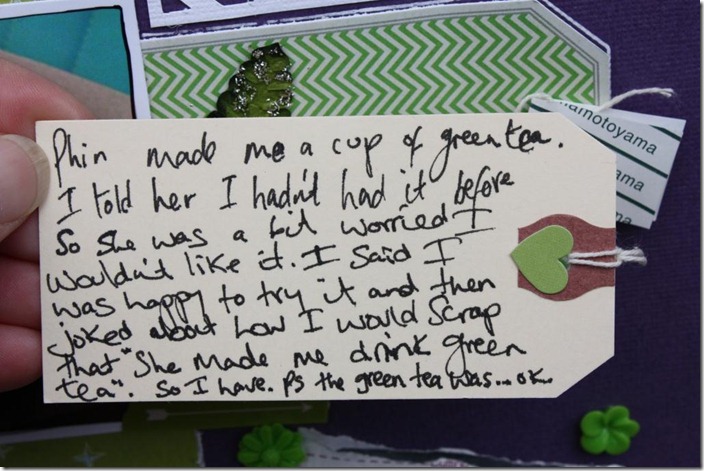 Phin made me a cup of green tea.
I told her I hadn't had it before
So she was a bit worried I
wouldn't like it. I said I
was happy to try it and then
joked about how I would Scrap
that "She made me drink green
tea". So I have. Ps the green tea was... ok...
amotoyama
amotoyama
yama